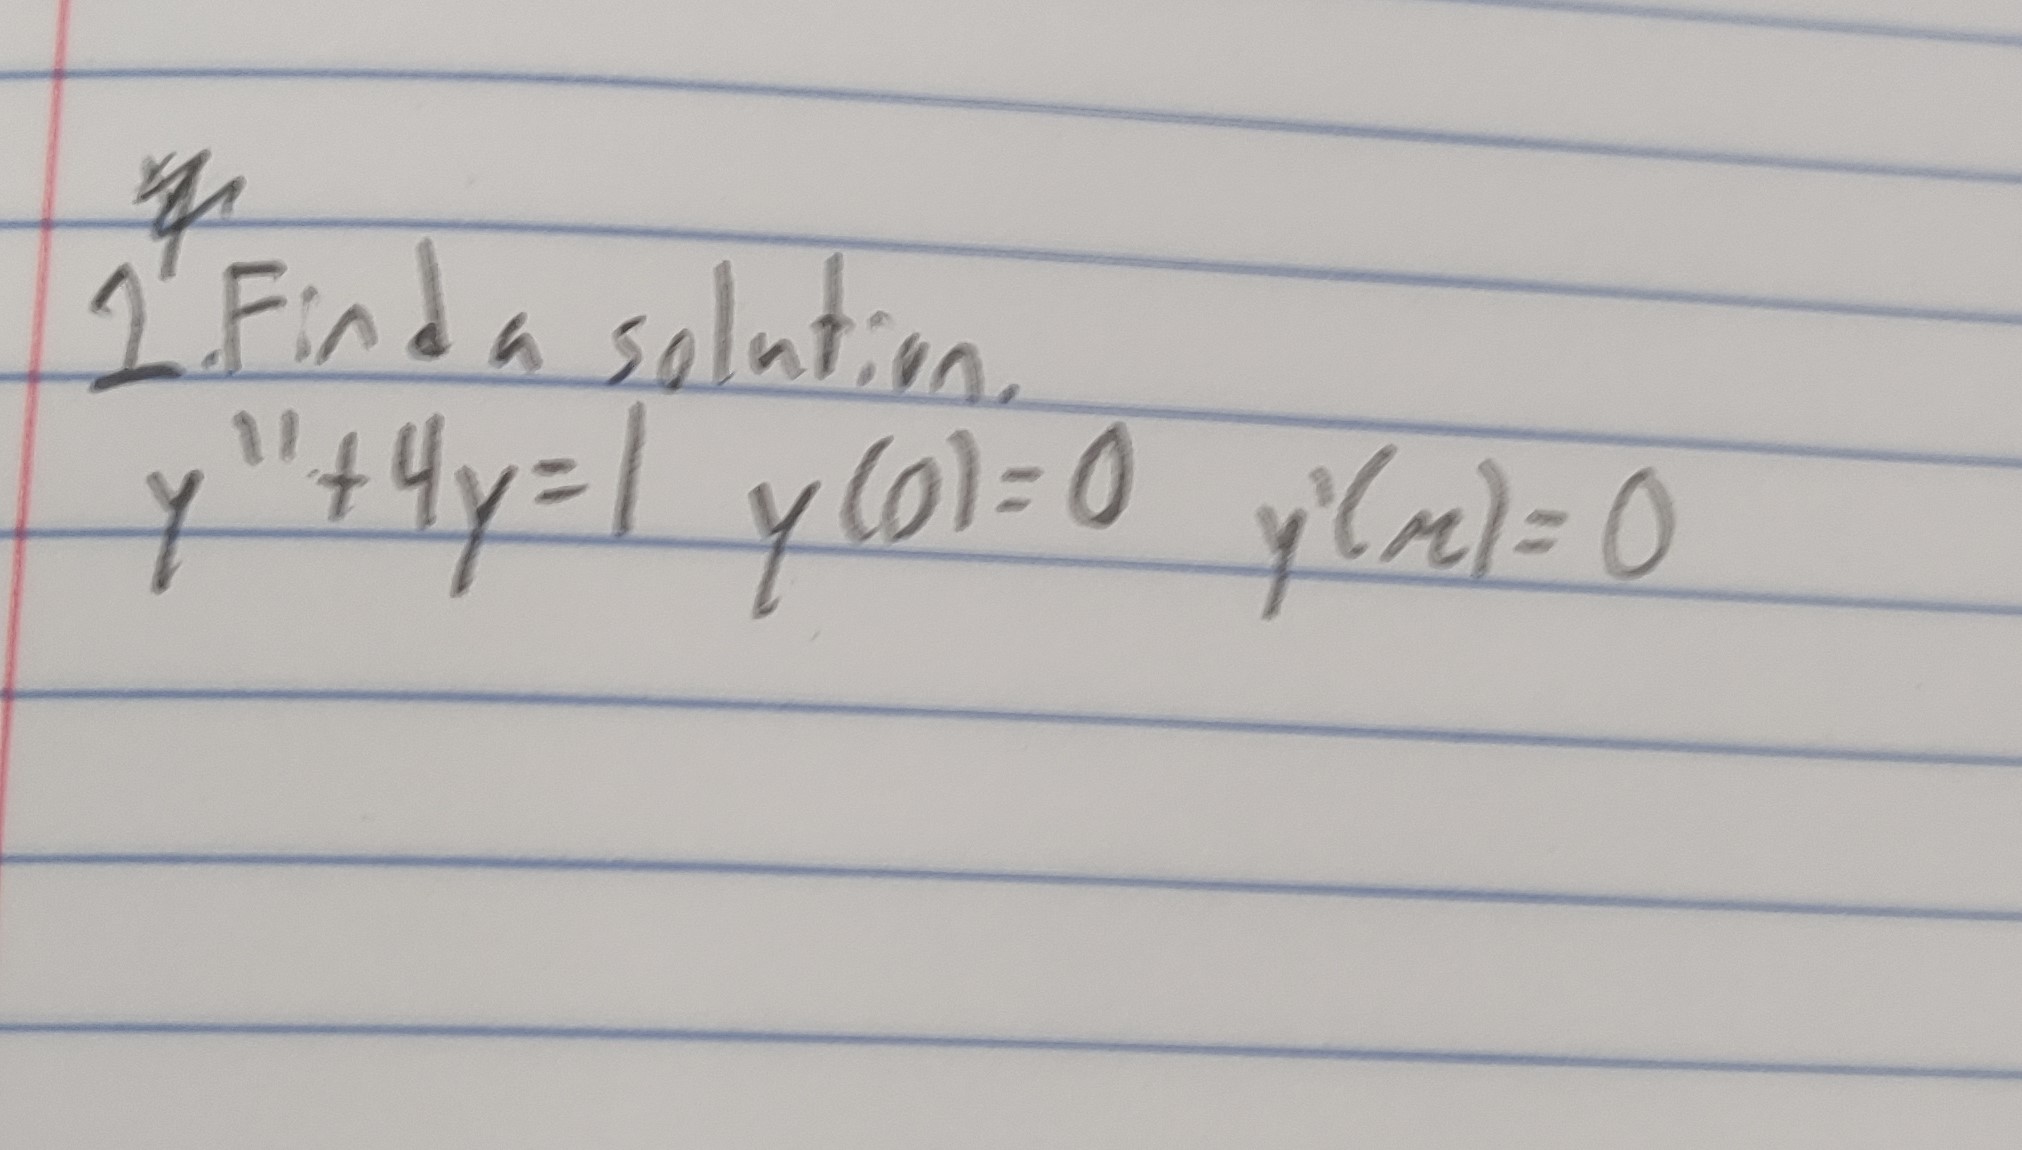 1. Find a solution.
y''+4y=1 y(0)=0 y'(π)=0